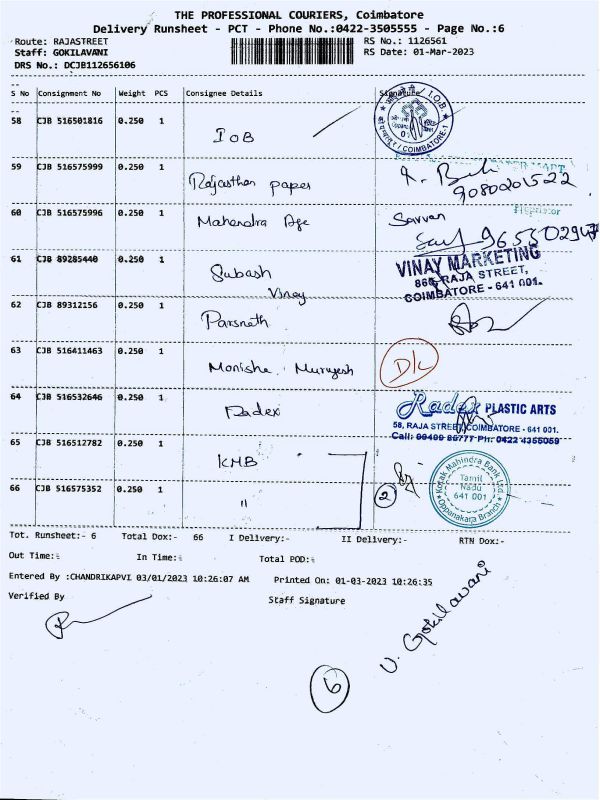 THE PROFESSIONAL COURIERS, Coimbatore
Delivery Runsheet - PCT - Phone No.:0422-3505555 - Page No.:6
Route: RAJASTREET
RS No.: 1126561
Staff: GOKILAVANI
RS Date: 01-Mar-2023
DRS No.: DCJB112656106
S No Consignment No Weight PCS Consignee Details Signature
58 CJB 516501816 0.250 1 IOB
I.O.B. COIMBATORE-1
59 CJB 516575999 0.250 1 Rajasthan paper
9080201522
60 CJB 516575996 0.250 1 Mahendra Age Sarvan
61 CJB 89285440 0.250 1 Subash
Vinay
VINAY MARKETING
866, RAJA STREET,
COIMBATORE - 641 001.
62 CJB 89312156 0.250 1 Parsnath
63 CJB 516411463 0.250 1 Monisha Murugesh D/L
64 CJB 516532646 0.250 1 Radex
Radex PLASTIC ARTS
58, RAJA STREET, COIMBATORE - 641 001.
Ph: 0422 4355059
65 CJB 516512782 0.250 1 KMB
Kotak Mahindra Bank Ltd.
Tamil
Nadu
641 001
Oppanakara Branch
66 CJB 516575352 0.250 1 " 2
Tot. Runsheet:- 6 Total Dox:- 66 I Delivery:- II Delivery:- RTN Dox:-
Out Time: In Time: Total POD:
Entered By :CHANDRIKAPVI 03/01/2023 10:26:07 AM Printed On: 01-03-2023 10:26:35
Verified By Staff Signature
V. Gokilavani
6